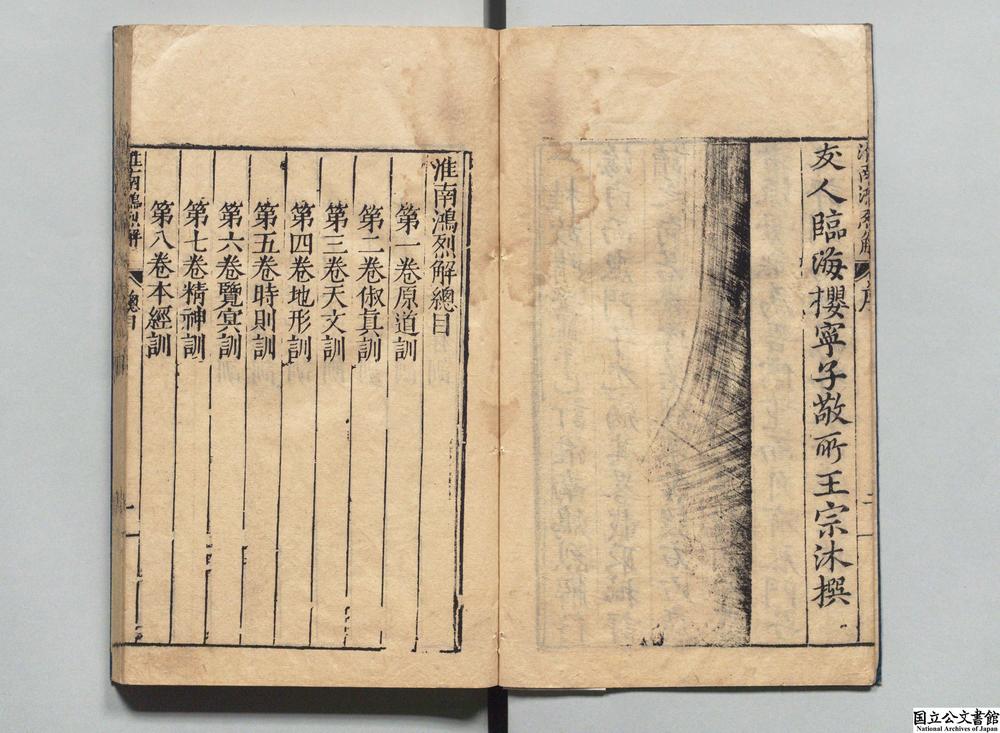 友人臨海攖寧子敬所王宗沐撰
淮南鴻烈解
序
二
淮南鴻烈解總目
第一卷原道訓
第二卷俶真訓
第三卷天文訓
第四卷地形訓
第五卷時則訓
第六卷覽冥訓
第七卷精神訓
第八卷本經訓
淮南鴻烈解
總目
一
国立公文書館
National Archives of Japan